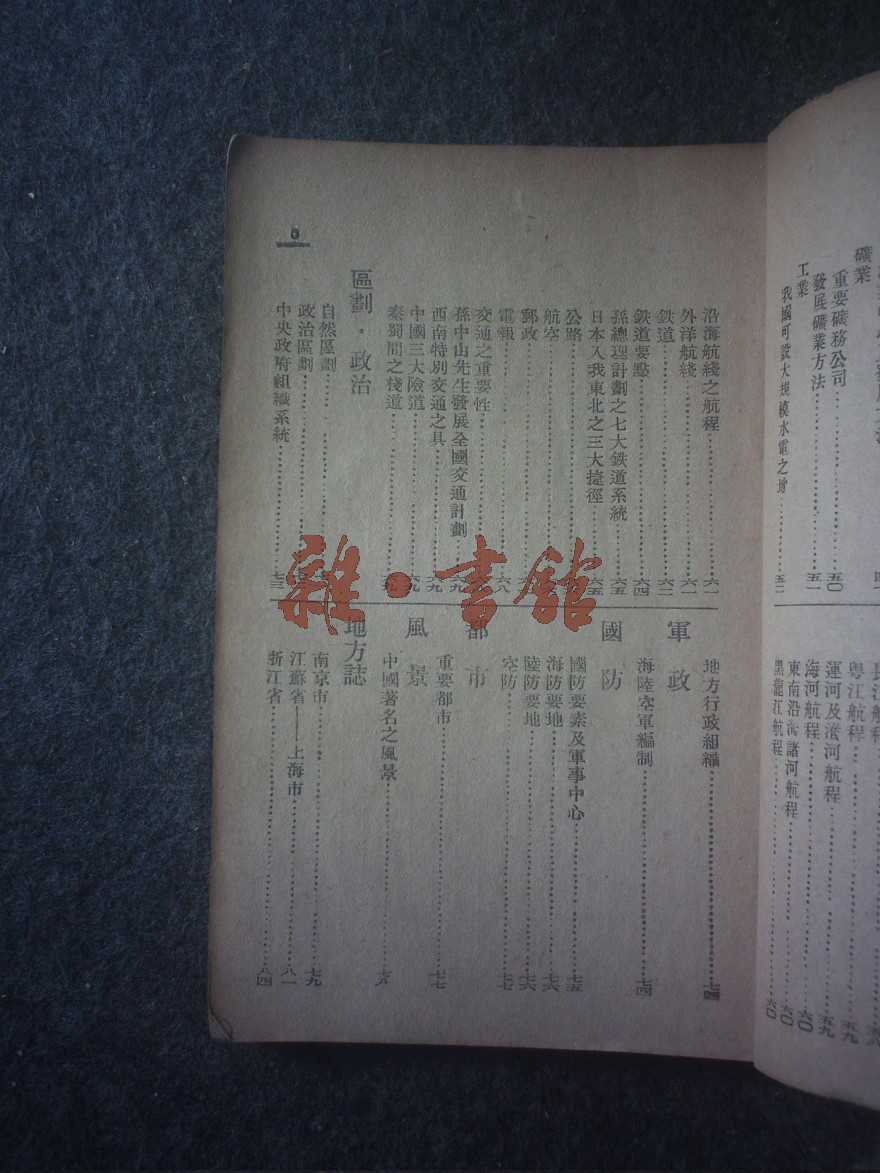 礦業
重要礦務公司……五〇
發展礦業方法……五一
工業
我國可設大規模水電之地……五二
粵江航程……五九
運河及淮河航程……五九
海河航程……六〇
東南沿海諸河航程……六〇
黑龍江航程……六〇
沿海航綫之航程……六一
外洋航綫……六一
鉄道……六二
鉄道要點……六四
孫總理計劃之七大鉄道系統……六五
日本入我東北之三大捷徑……六五
公路
航空
郵政
電報……六八
交通之重要性
孫中山先生發展全國交通計劃……六九
西南特別交通之具……六九
中國三大險道……六九
秦蜀間之棧道
區劃·政治
自然區劃
政治區劃
中央政府組織系統……七三
地方行政組織……七四
軍政
海陸空軍編制……七四
國防
國防要素及軍事中心……七五
海防要地……七六
陸防要地……七六
空防……七七
都市
重要都市……七七
風景
中國著名之風景……七八
地方誌
南京市……七九
江蘇省——上海市……八一
浙江省……八四
6
雜·書館